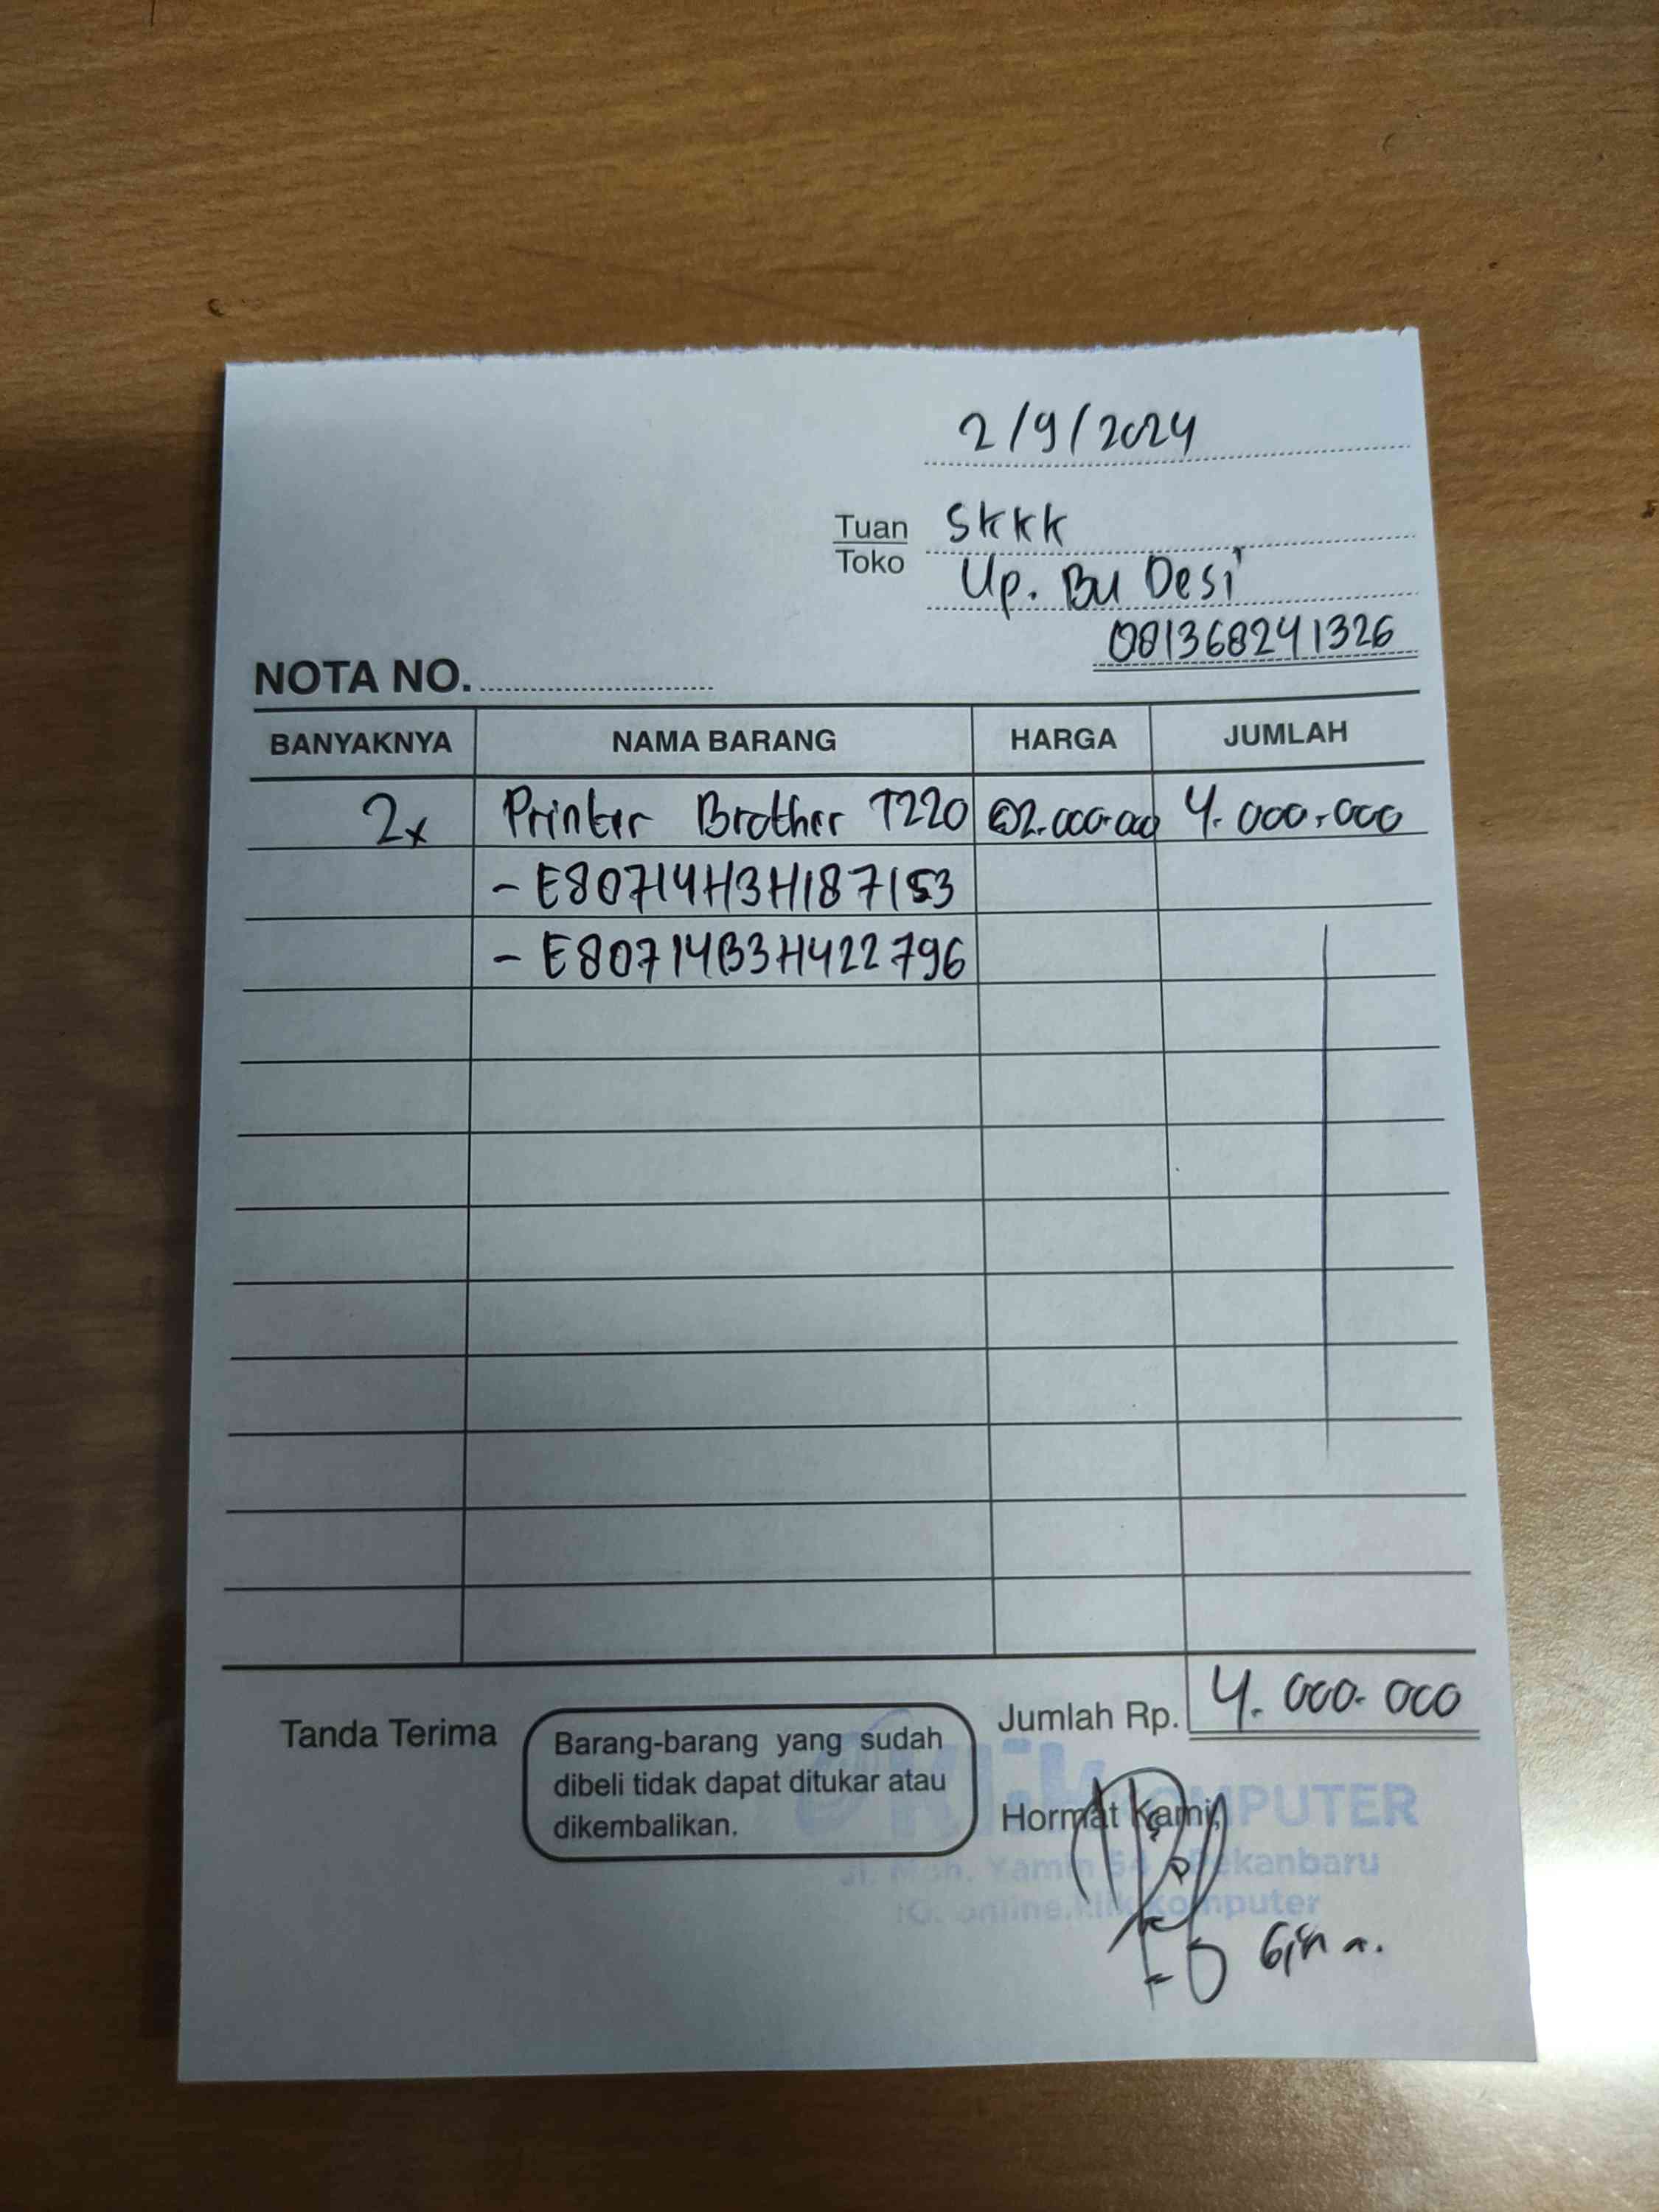 2/9/2024
Tuan SKKK
Toko Up. Bu Desi
081368241326
NOTA NO.
BANYAKNYA NAMA BARANG HARGA JUMLAH
2x Printer Brother T220 @2.000.000 4.000.000
- E80714H3H187153
- E80714B3H422796
Jumlah Rp. 4.000.000
Tanda Terima
Barang-barang yang sudah
dibeli tidak dapat ditukar atau
dikembalikan.
Hormat Kami,
Klik KOMPUTER
Jl. Moh. Yamin Pekanbaru
IG. online.klik komputer